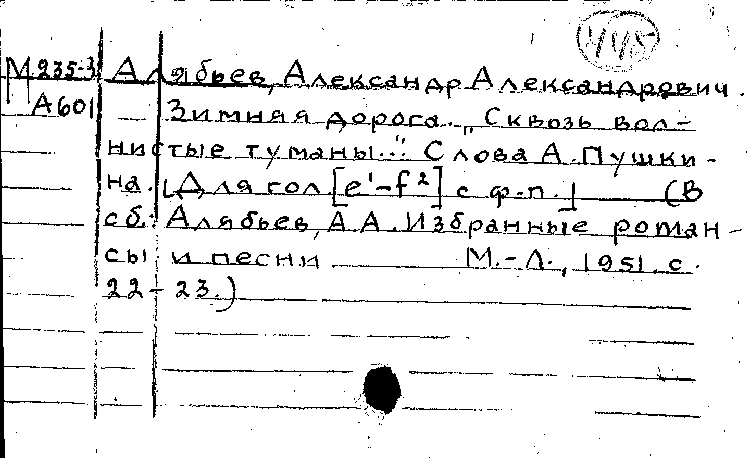 445
М 235-3 Алябьев, Александр Александрович.
А601 Зимняя дорога. „Сквозь вол-
нистые туманы..." Слова А. Пушки-
на. [Для гол [e¹-f²] с ф-п.] (В
сб.: Алябьев, А А. Избранные роман-
сы и песни М.-Л., 1951. с.
22-23.)